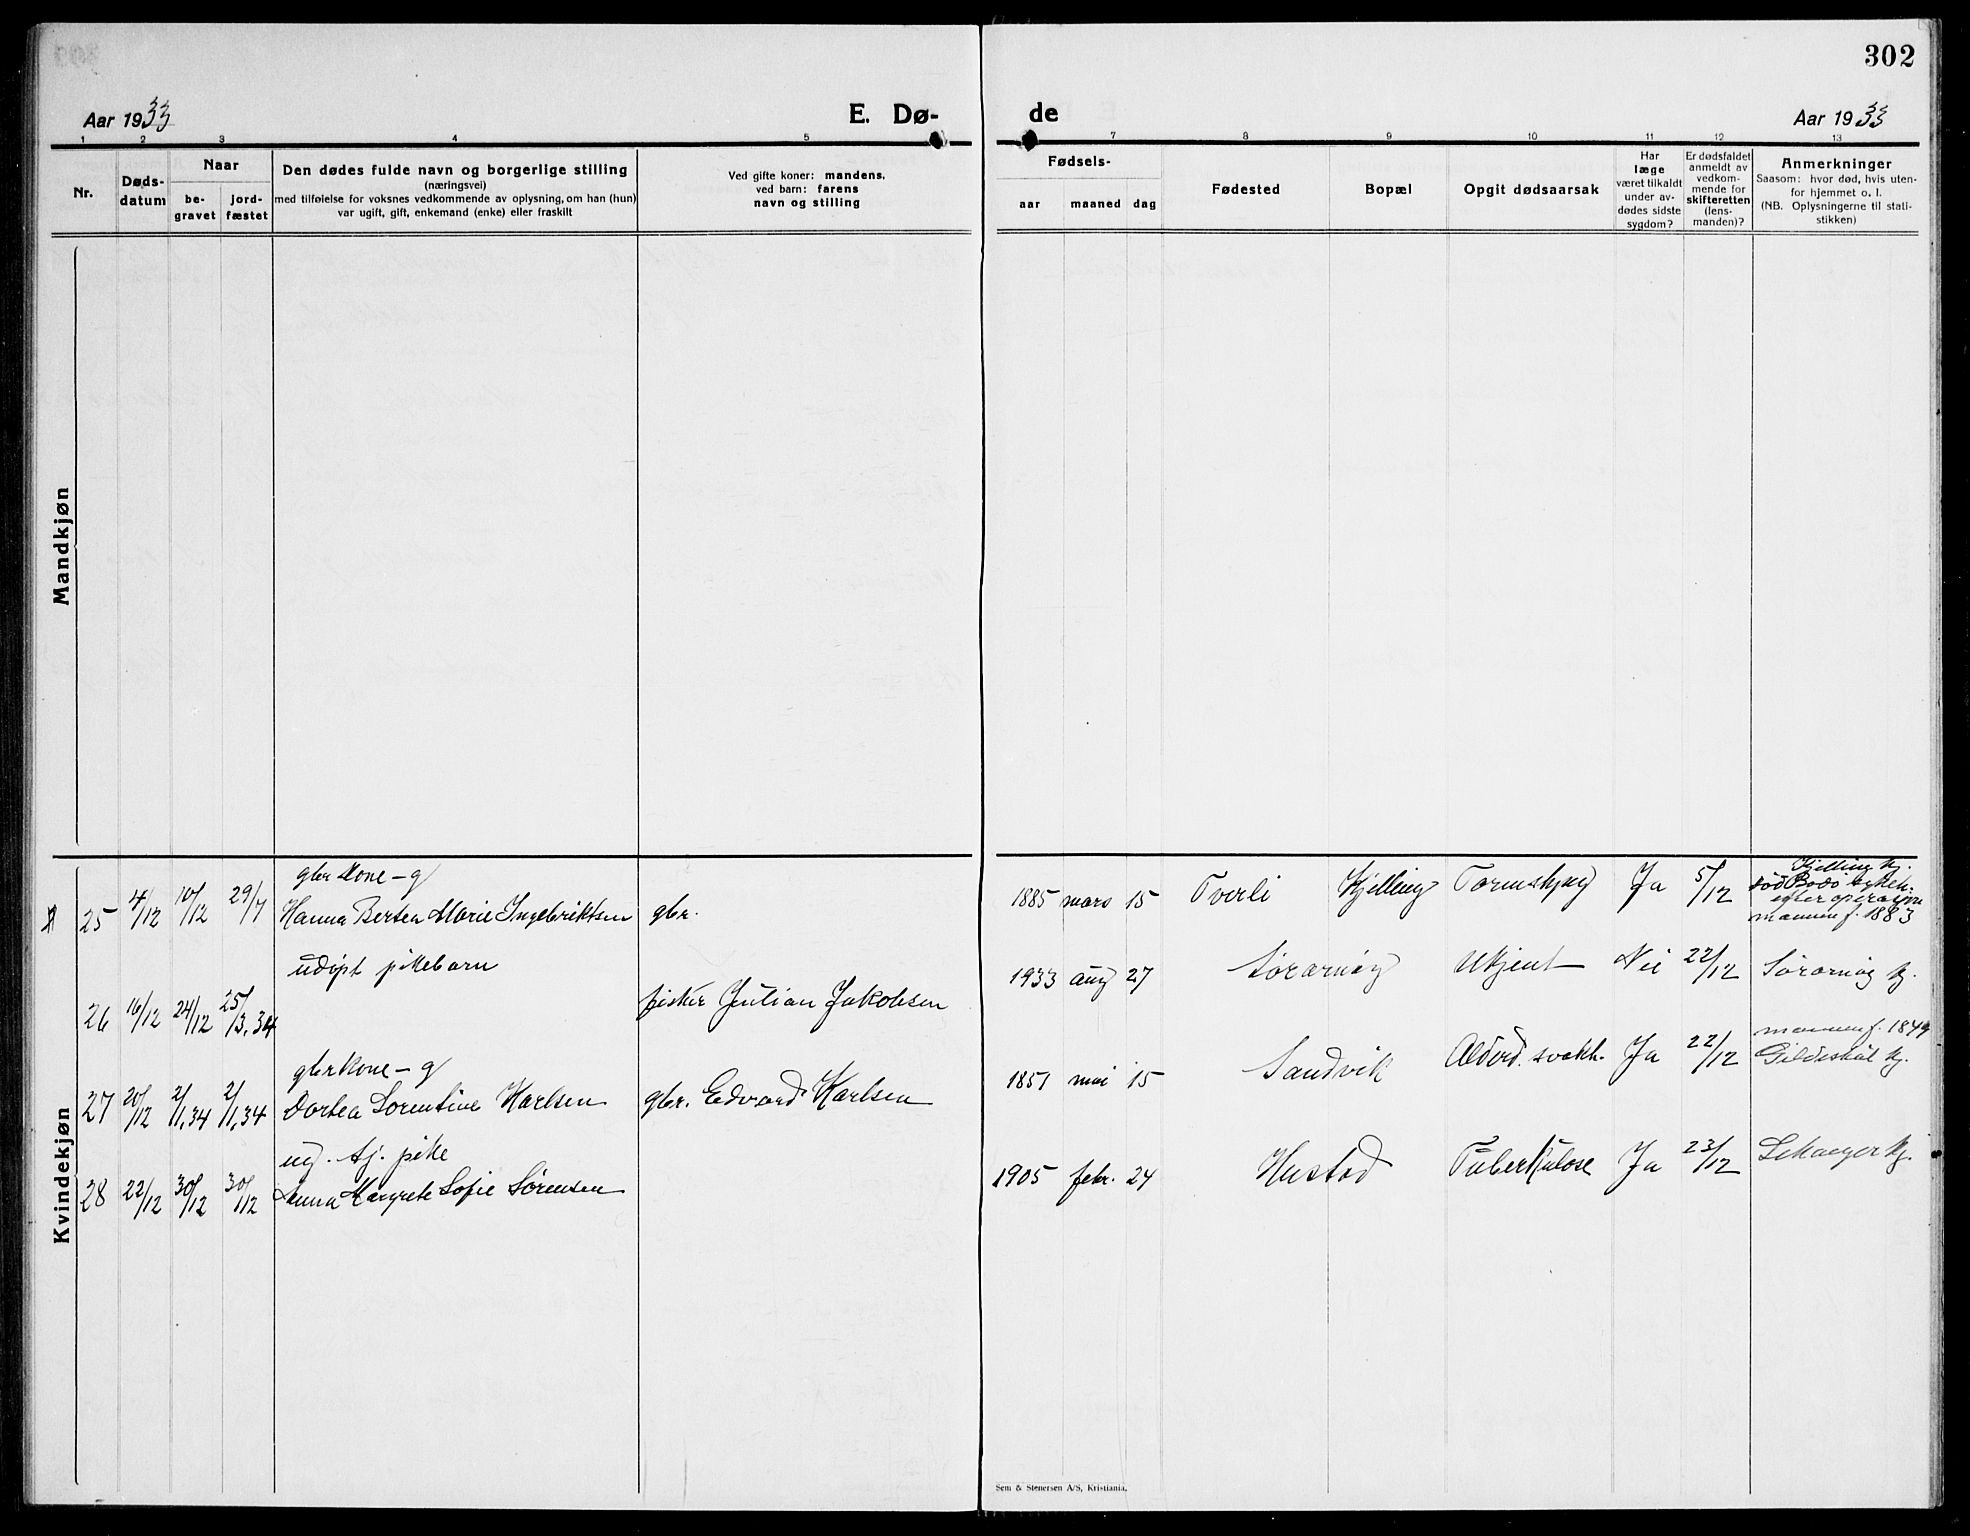 302
Aar 1933
E. Dø-
de
Aar 1933
1 2 3 4 5 7 8 9 10 11 12 13
Nr.
Døds-
datum
Naar
be-
gravet
jord-
fæstet
Den dødes fulde navn og borgerlige stilling
(næringsvei)
med tilføielse for voksnes vedkommende av oplysning, om han (hun)
var ugift, gift, enkemand (enke) eller fraskilt
Ved gifte koner: mandens,
ved barn: farens
navn og stilling
Fødsels-
aar maaned dag
Fødested
Bopæl
Opgit dødsaarsak
Har
læge
været tilkaldt
under av-
dødes sidste
sygdom?
Er dødsfaldet
anmeldt av
vedkom-
mende for
skifteretten
(lens-
manden)?
Anmerkninger
Saasom: hvor død, hvis uten-
for hjemmet o. l.
(NB. Oplysningerne til stati-
stikken)
Mandkjøn
Kvindekjøn
gbr kone - g
25 4/12 10/12 29/7 Hanna Bertea Marie Ingebriktsen gbr.
1885 mars 15 Tverli Kjelling Tarmslyng Ja 5/12
Kjelling kj.
død Bodø sykeh.
efter operasjon
mannen f. 1883
udøpt pikebarn
26 16/12 24/12 25/3.34 fisker Julian Jakobsen
1933 aug 27 Sørarnøy Ukjent Nei 22/12 Sørarnøy kj.
gbrkone - g
27 20/12 2/1.34 2/1.34 Dortea Sorentine Karlsen gbr. Edvard Karlsen
1851 mai 15 Sandvik Alderd. svakh. Ja 22/12
mannen f. 1849
Gildeskål kj.
ug. tj. pike
28 22/12 30/12 30/12 Anna Margrete Sofie Sørensen
1905 febr. 24 Hustad Tuberkulose Ja 23/12
Sem & Stenersen A/S, Kristiania.